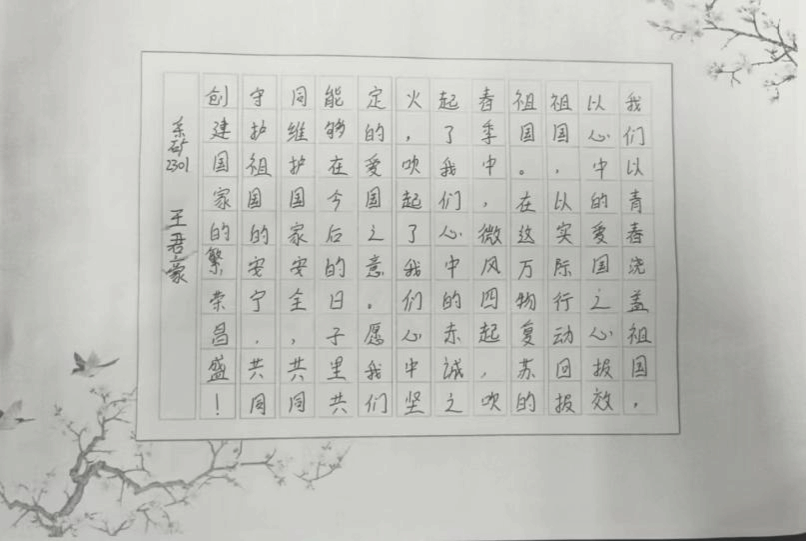 我们以青春浇盖祖国，
以心中的爱国之心报效
祖国，以实际行动回报
祖国。在这万物复苏的
春季中，微风四起，吹
起了我们心中的赤誠之
火，吹起了我们心中坚
定的爱国之意。愿我们
能够在今后的日子里共
同维护国家安全，共同
守护祖国的安宁，共同
创建国家的繁荣昌盛！
矿2301 王君豪